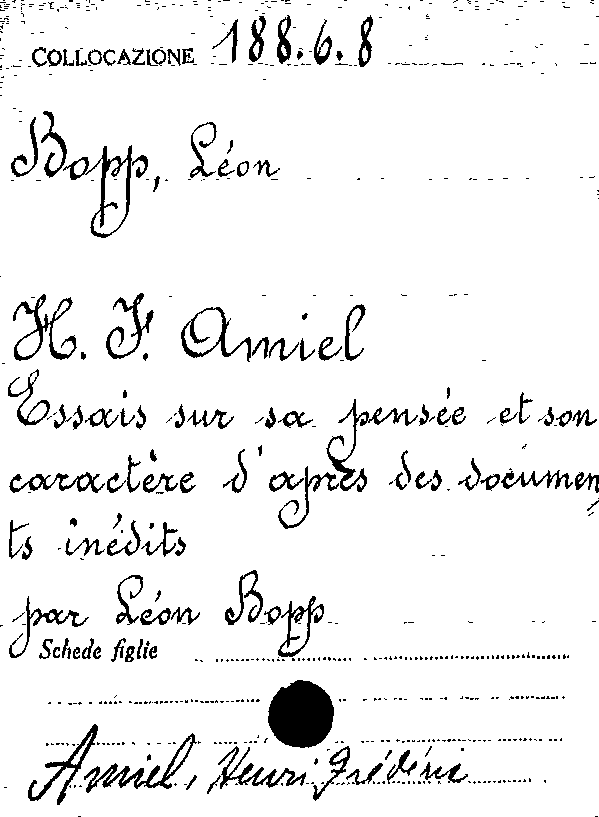 COLLOCAZIONE 188.6.8
Bopp, Léon
H. F. Amiel
Essais sur sa pensée et son
caractère d'après des documen
ts inédits
par Léon Bopp
Schede figlie
Amiel, Henri Frédéric